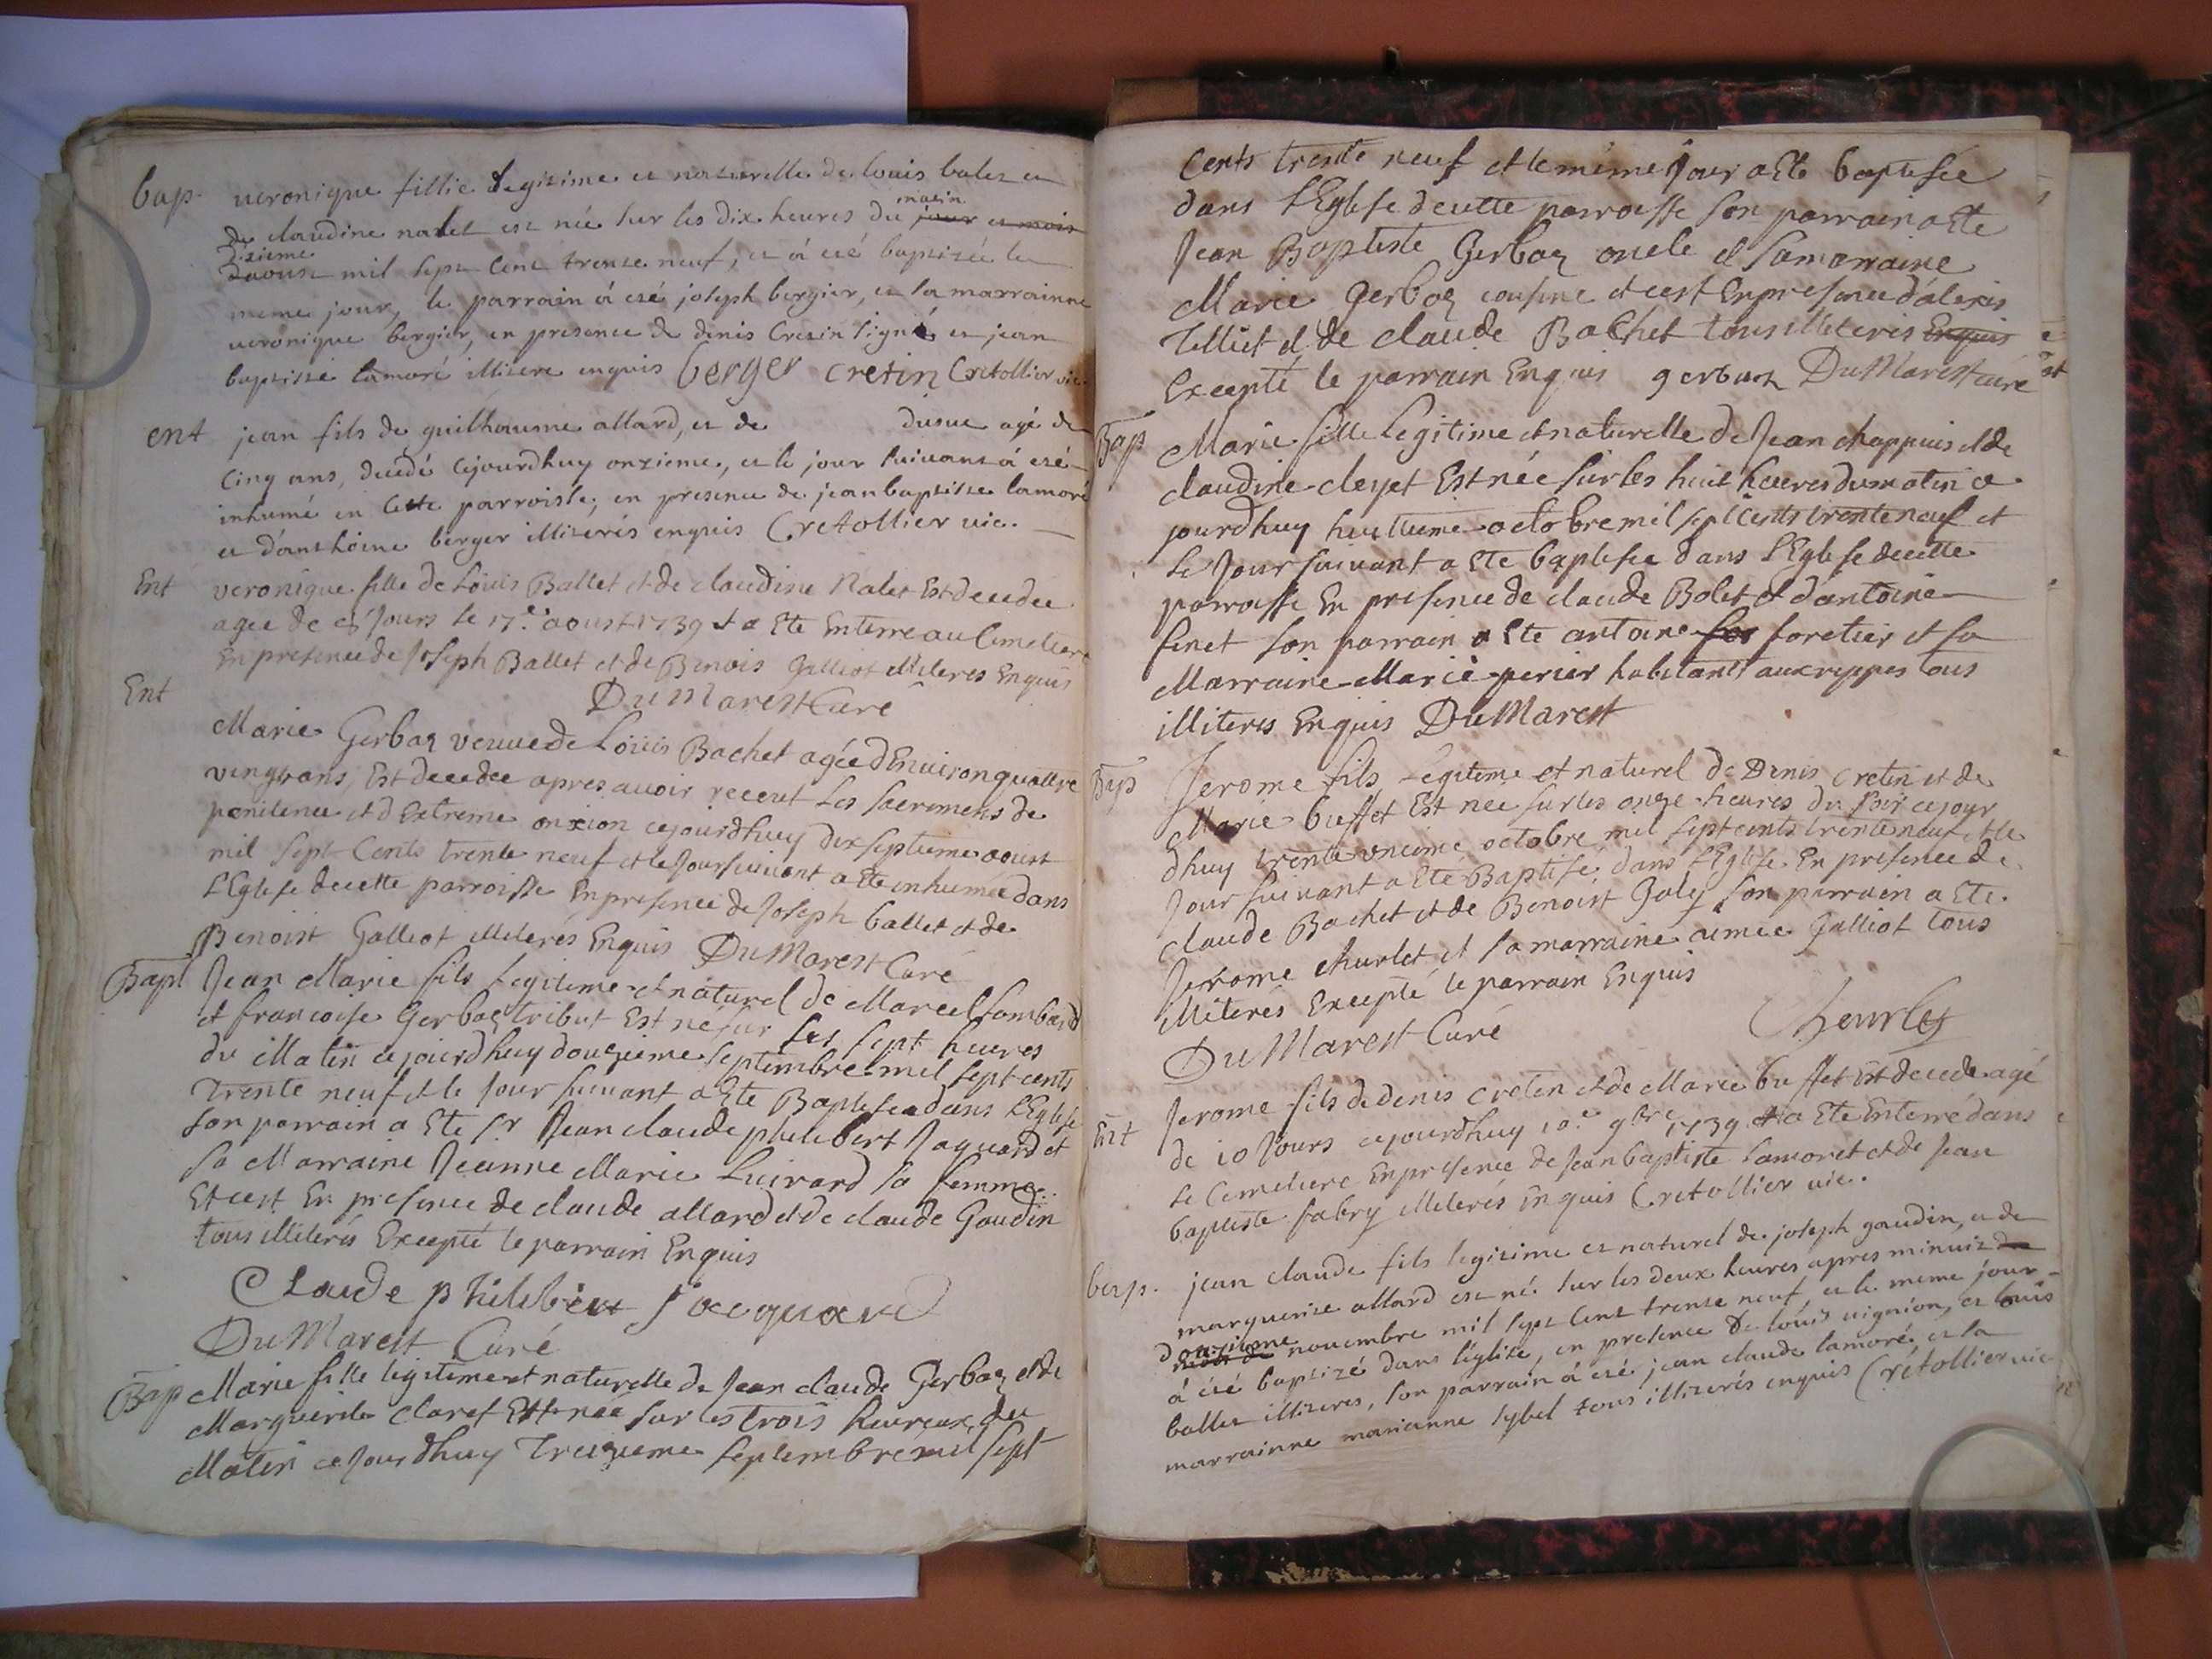 bap. veronique fillie legitime et naturelle de louis balet et
de claudine nalet est née sur les dix heures du matin jour et mois
dixieme daoust mil sept cent trente neuf, et á eté baptizée le
meme jour, le parrain á eté joseph bergier, et la marrainne
veronique bergier, en presence de denis Cretin signé et jean
baptiste lamoré illitere enquis berger cretin Cretollier vic.
ent jean fils de guilhaume allard, et de dusue agé de
Cinq ans, decedé cejourdhuy onzieme, et le jour suivant á eté
inhumé en Cette parroisse, en presence de jean baptiste lamoré
et d'anthoine berger illiterés enquis Cretollier vic.
Ent veronique fille de Loüis Ballet et de claudine Nalet Est decedee
agee de 8 Jours le 17e aoust 1739 et a Ete Enterre au Cimetiere
En presence de Joseph Ballet et de Benois Galliot illiteres Enquis
DuMarest Curé
Ent
Marie Gerbaz veuve de Loüis Bachet agée d'Environ quattre
vingt ans, Est decedee apres avoir receut les sacremens de
penitence et d'Extreme onxion cejourdhuy dix septieme aoust
mil sept Cents trente neuf et le Jour suivant a Ete inhumée dans
L'Eglise de cette parroisse En presence de Joseph ballet et de
Benoist Galliot illiterés Enquis DuMarest Curé
Bapt Jean Marie fils legitime et naturel de Marcel Lombard
et francoise Gerbaz tribut Est né sur les sept heures
du Matin cejourdhuy douzieme septembre mil sept cents
Trente neuf et le Jour suivant a Ete Baptise dans L'Eglise
son parrain a Ete Sr Jean claude philibert Jaquard et
sa Marraine Jeanne Marie Luirard sa femme
Et c'est En presence de claude allard et de claude Gaudin
tous illiterés Excepté le parrain Enquis
Claude philibert jacquard
DuMarest Curé
Bap Marie fille legitime et naturelle de Jean claude Gerbaz et de
Marguerite Claret Est née sur les trois heures du
Matin ce Jourdhuy Treizieme septembre mil sept
Cents trente neuf et le même Jour a Ete baptisée
dans L'Eglise de cette parroisse son parrain a Ete
Jean Baptiste Gerbaz oncle et sa marraine
Marie Gerbaz cousine et c'est En presence d'alexis
Tilliet et de claude Bachet tous illiteris Enquis
Excepté le parrain Enquis gerbaz DuMarest curé
Bap Marie fille Legitime et naturelle de Jean chappuis et de
claudine cleyet Est née sur les huit heures du matin ce
jourdhuy huittieme octobre mil sept Cents trente neuf et
Le Jour suivant a Ete baptisee dans L'Eglise de cette
parroisse En presence de claude Bolet et d'antoine
finet son parrain a Ete antoine for foretier et sa
Marraine Marie perier habitants aux rippes tous
illiteres Enquis DuMarest
Bap Jerome fils Legitime et naturel de Denis cretin et de
Marie buffet Est née sur les onze heures du soir ce jour
dhuy trente unieme octobre mil sept cents trente neuf et le
Jour suivant a Eté Baptisé dans L'Eglise En presence de
claude Bachet et de Benoist Goly son parrain a Ete
Jerome churlet et sa marraine aimée Galliot tous
illiterés Excepté le parrain Enquis
DuMarest Curé Cheurlet
Ent Jerome fils de denis cretin et de Marie buffet Est decede agé
de 10 Jours cejourdhuy 10e 9bre 1739 et a Ete Enterré dans
Le Cimetiere En presence de Jean baptiste Lamoret et de Jean
baptiste fabry illiterés Enquis Cretollier vic.
bap. jean claude fils legitime et naturel de joseph gaudin, et de
marguerite allard est né sur les deux heures apres minuit
douzieme novembre mil sept cent trente neuf, et le meme jour
á eté baptizé dans l'églize, en presence de loúis vignion, et louis
ballet illiteres, son parrain á eté jean claude lamoré et la
marrainne marianne sybel tous illiterés enquis Crétollier vic